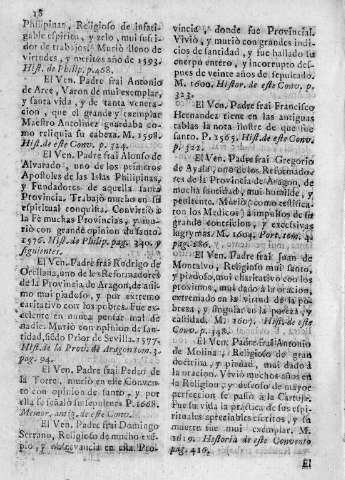 18
Philipinas, Religioso de infati-
gable espiritu, y zelo, mui sufri-
dor de trabajos. Murió lleno de
virtudes, y meritos año de 1593.
Hist. in Philip. p. 468.
El Ven. Padre frai Antonio
de Arce, Varon de mui exemplar,
y santa vida, y de tanta venera-
cion, que el grande y exemplar
Maestro Antolinez guardaba co-
mo reliquia su cabeza. M. 1598.
Hist. de este Conv. p. 324.
El Ven. Padre frai Alonso de
Alvarado, uno de los primeros
Apostoles de las Islas Philipinas,
y Fundadores de aquella santa
Provincia. Trabajó mucho en su
espiritual conquista. Convertió à
la Fè muchas Provincias, y mu-
rió con grande opinion de santo.
1576. Hist. de Philip. pag. 340. y
siguientes.
El Ven. Padre frai Rodrigo de
Orellana, uno de los Reformadores
de la Provincia de Aragon, de ani-
mo mui piadoso, y por extremo
caritativo con los pobres. Fue ex-
celente en nunca pensar mal de
nadie. Murió con opinion de san-
tidad, siendo Prior de Sevilla. 1577.
Hist. de la Prov. de Aragon tom. 3.
pag. 94.
El Ven. Padre frai Pedro de
la Torre, murio en este Conven-
to con opinion de santo, y por
ella se señaló su sepulcro. P. 1608.
Memor. antig. de este Conv.
El Ven. Padre frai Domingo
Serrano, Religioso de mucho exem-
plo, y observancia en esta Pro-
vincia, donde fue Provincial.
Vivió, y murió con grandes indi-
cios de santidad, y fue hallado su
cuerpo entero, y incorrupto des-
pues de veinte años de sepultado.
M. 1600. Histor. de este Conv. p.
323.
El Ven. Padre frai Francisco
Hernandez tiene en las antiguas
tablas la nota ilustre de que fue
santo. P. 1565. Hist. de este Conv.
p. 322.
El Ven. Padre frai Gregorio
de Ayala, uno de los Reformado-
res de la Provincia de Aragon, de
mucha santidad, mui humilde, y
penitente, cuya muerte reconocie-
ron los Medicos à impulsos de su
grande contricion, y excesivas
lagrymas. M. 1604. Port. tom. 4.
pag. 280.
El Ven. Padre frai Juan de
Montalvo, Religioso mui santo,
y piadoso, mui charitativo con los
proximos, mui dado à la oracion,
extremado en la virtud de la po-
breza, y singular en la pureza, y
castidad. M. 1607. Hist. de este
Conv. p. 348.
El Ven. Padre frai Antonio
de Molina, Religioso de gran
doctrina, y piedad, mui dado à
la oracion. Vivió muchos años en
la Religion, y deseoso de mayor
perfeccion se pasó à la Cartuja.
Fue su vida la práctica de sus espi-
rituales apreciables escritos, y su
muerte fue mui exemplar. M.
1619. Historia de este Convento
pag. 416.
El